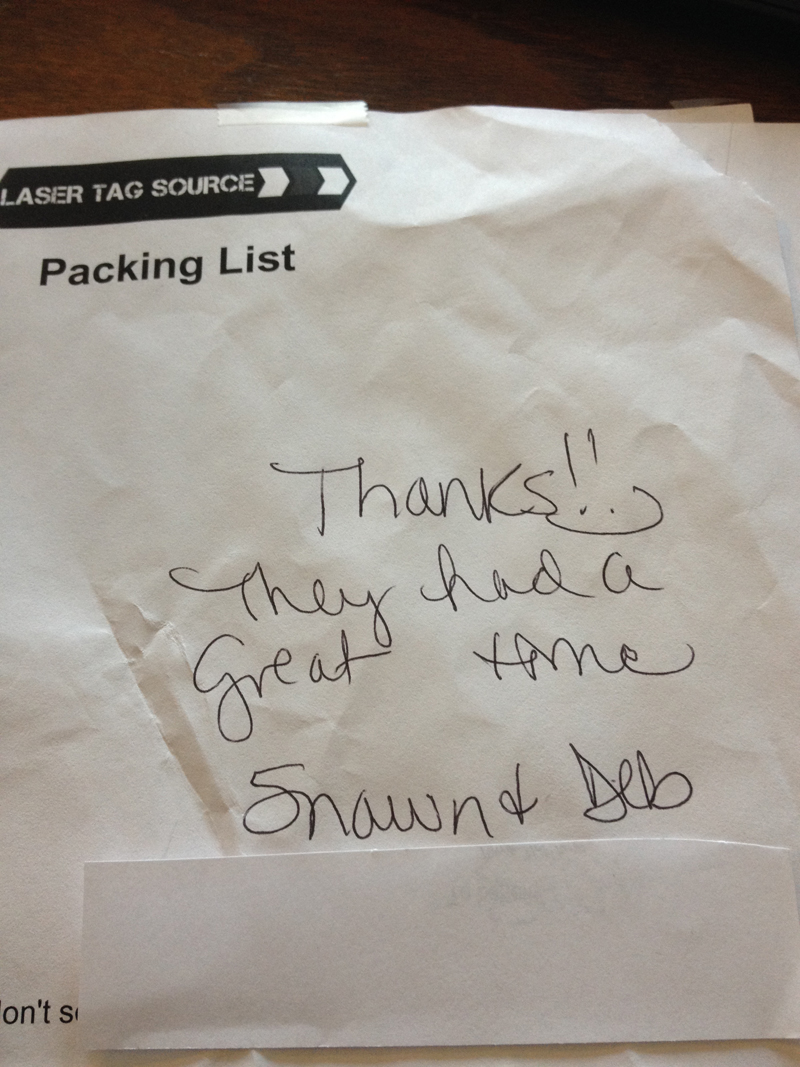 LASER TAG SOURCE
Packing List
Thanks!!
They had a
Great time
Shawn & Deb
on't s